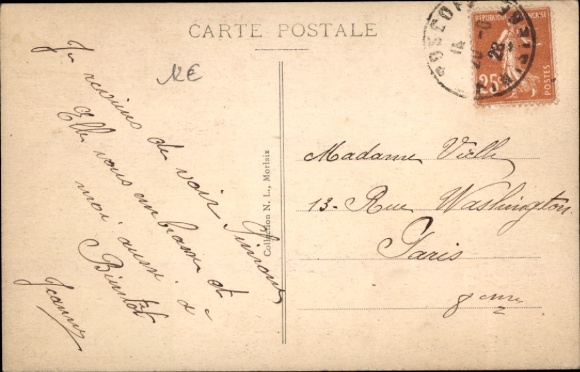 CARTE POSTALE
Je reviens de voir Simone
Elle vous embrasse et
moi aussi à
Bientôt
Jeanne
Collection N. L., Morlaix
RÉPUBLIQUE FRANÇAISE
25c
POSTES
ROSCOFF
14
28
Madame Vielle
13 - Rue Washington
Paris
8eme